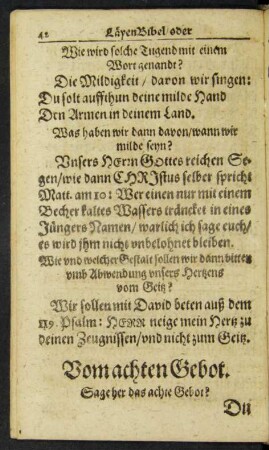 42 LäyenBibel/oder
Wie wird solche Tugend mit einem
Wort genandt?
Die Mildigkeit / darvon wir singen:
Du solt auffthun deine milde Hand
Den Armen in deinem Land.
Was haben wir dann davon/wann wir
milde seyn?
Vnsers HErrn GOttes reichen Se-
gen/wie dann CHRJstus selber spricht
Matt. am 10: Wer einen nur mit einem
Becher kaltes Wassers träncket in eines
Jüngers Namen/ warlich ich sage euch/
es wird jhm nicht unbelohnet bleiben.
Wie vnd welcher Gestalt sollen wir dann bitten
vmb Abwendung vnsers Hertzens
vom Geitz?
Wir sollen mit David beten auß dem
119. Psalm: HERR neige mein Hertz zu
deinen Zeugnissen/vnd nicht zum Geitz.
Vom achten Gebot.
Sage her das achte Gebot?
Du